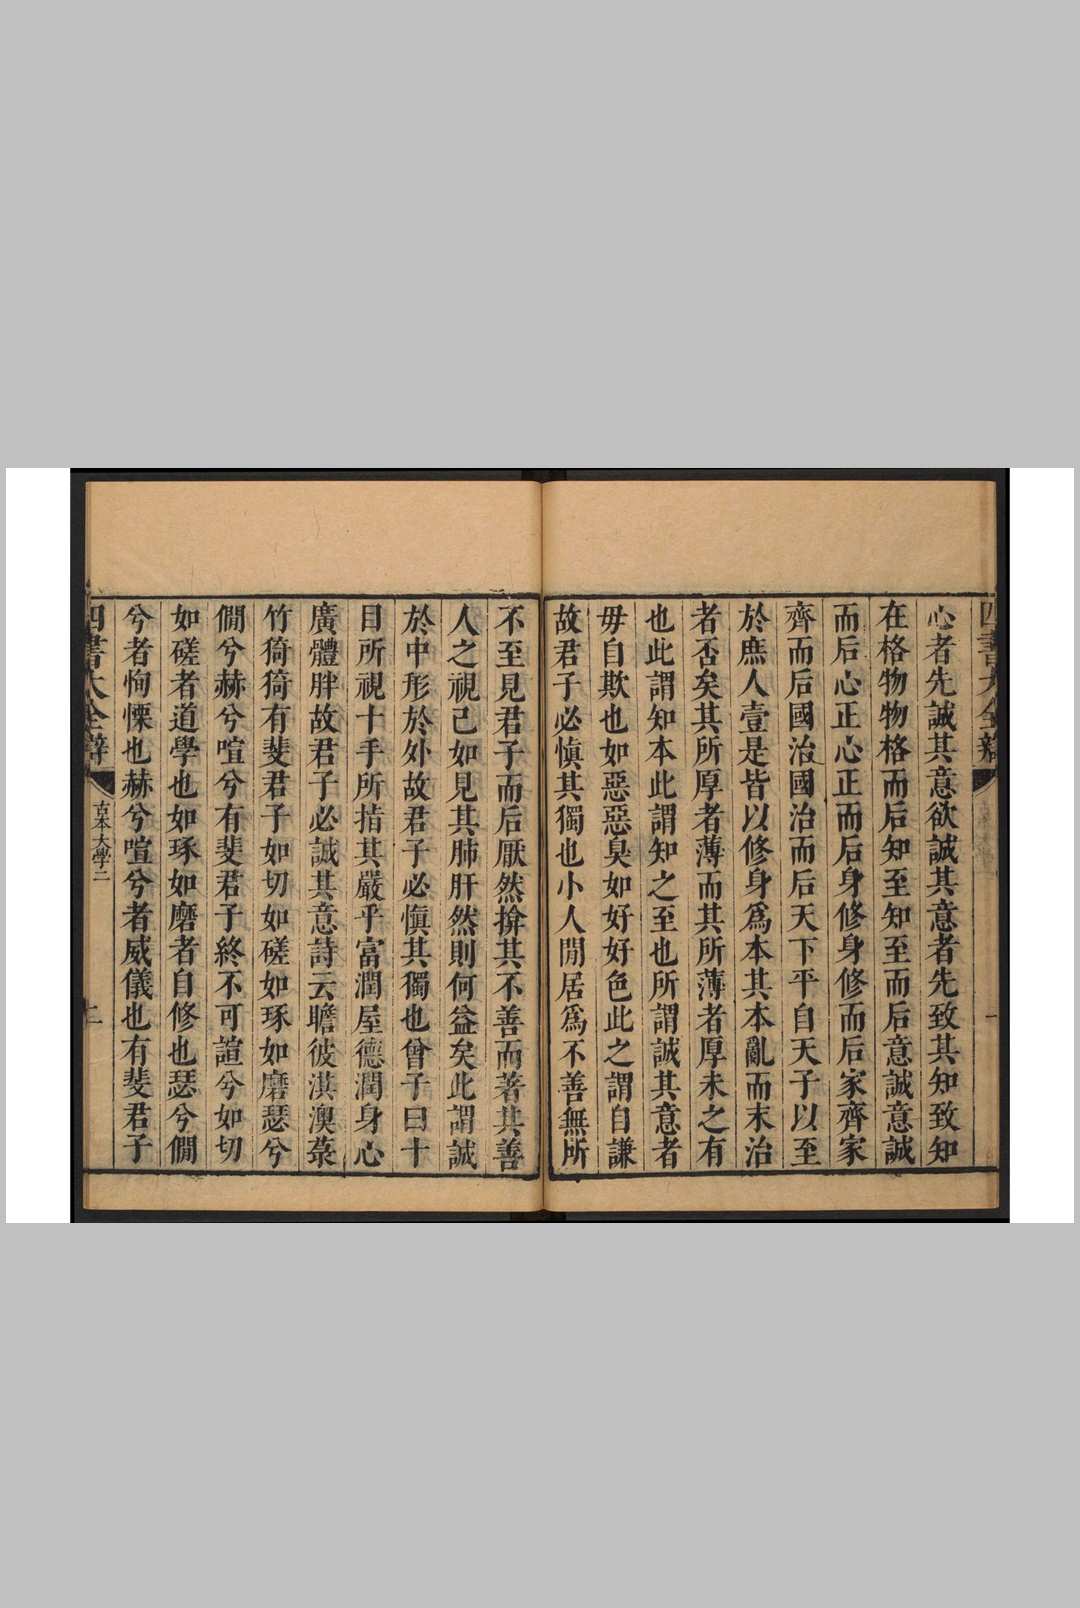 四書大全辯
一
心者先誠其意欲誠其意者先致其知致知
在格物物格而后知至知至而后意誠意誠
而后心正心正而后身修身修而后家齊家
齊而后國治國治而后天下平自天子以至
於庶人壹是皆以修身爲本其本亂而末治
者否矣其所厚者薄而其所薄者厚未之有
也此謂知本此謂知之至也所謂誠其意者
毋自欺也如惡惡臭如好好色此之謂自謙
故君子必愼其獨也小人閒居爲不善無所
不至見君子而后厭然揜其不善而著其善
人之視己如見其肺肝然則何益矣此謂誠
於中形於外故君子必愼其獨也曾子曰十
目所視十手所指其嚴乎富潤屋德潤身心
廣體胖故君子必誠其意詩云瞻彼淇澳菉
竹猗猗有斐君子如切如磋如琢如磨瑟兮
僩兮赫兮喧兮有斐君子終不可諠兮如切
如磋者道學也如琢如磨者自修也瑟兮僩
兮者恂慄也赫兮喧兮者威儀也有斐君子
四書大全辯
古本大學二
二